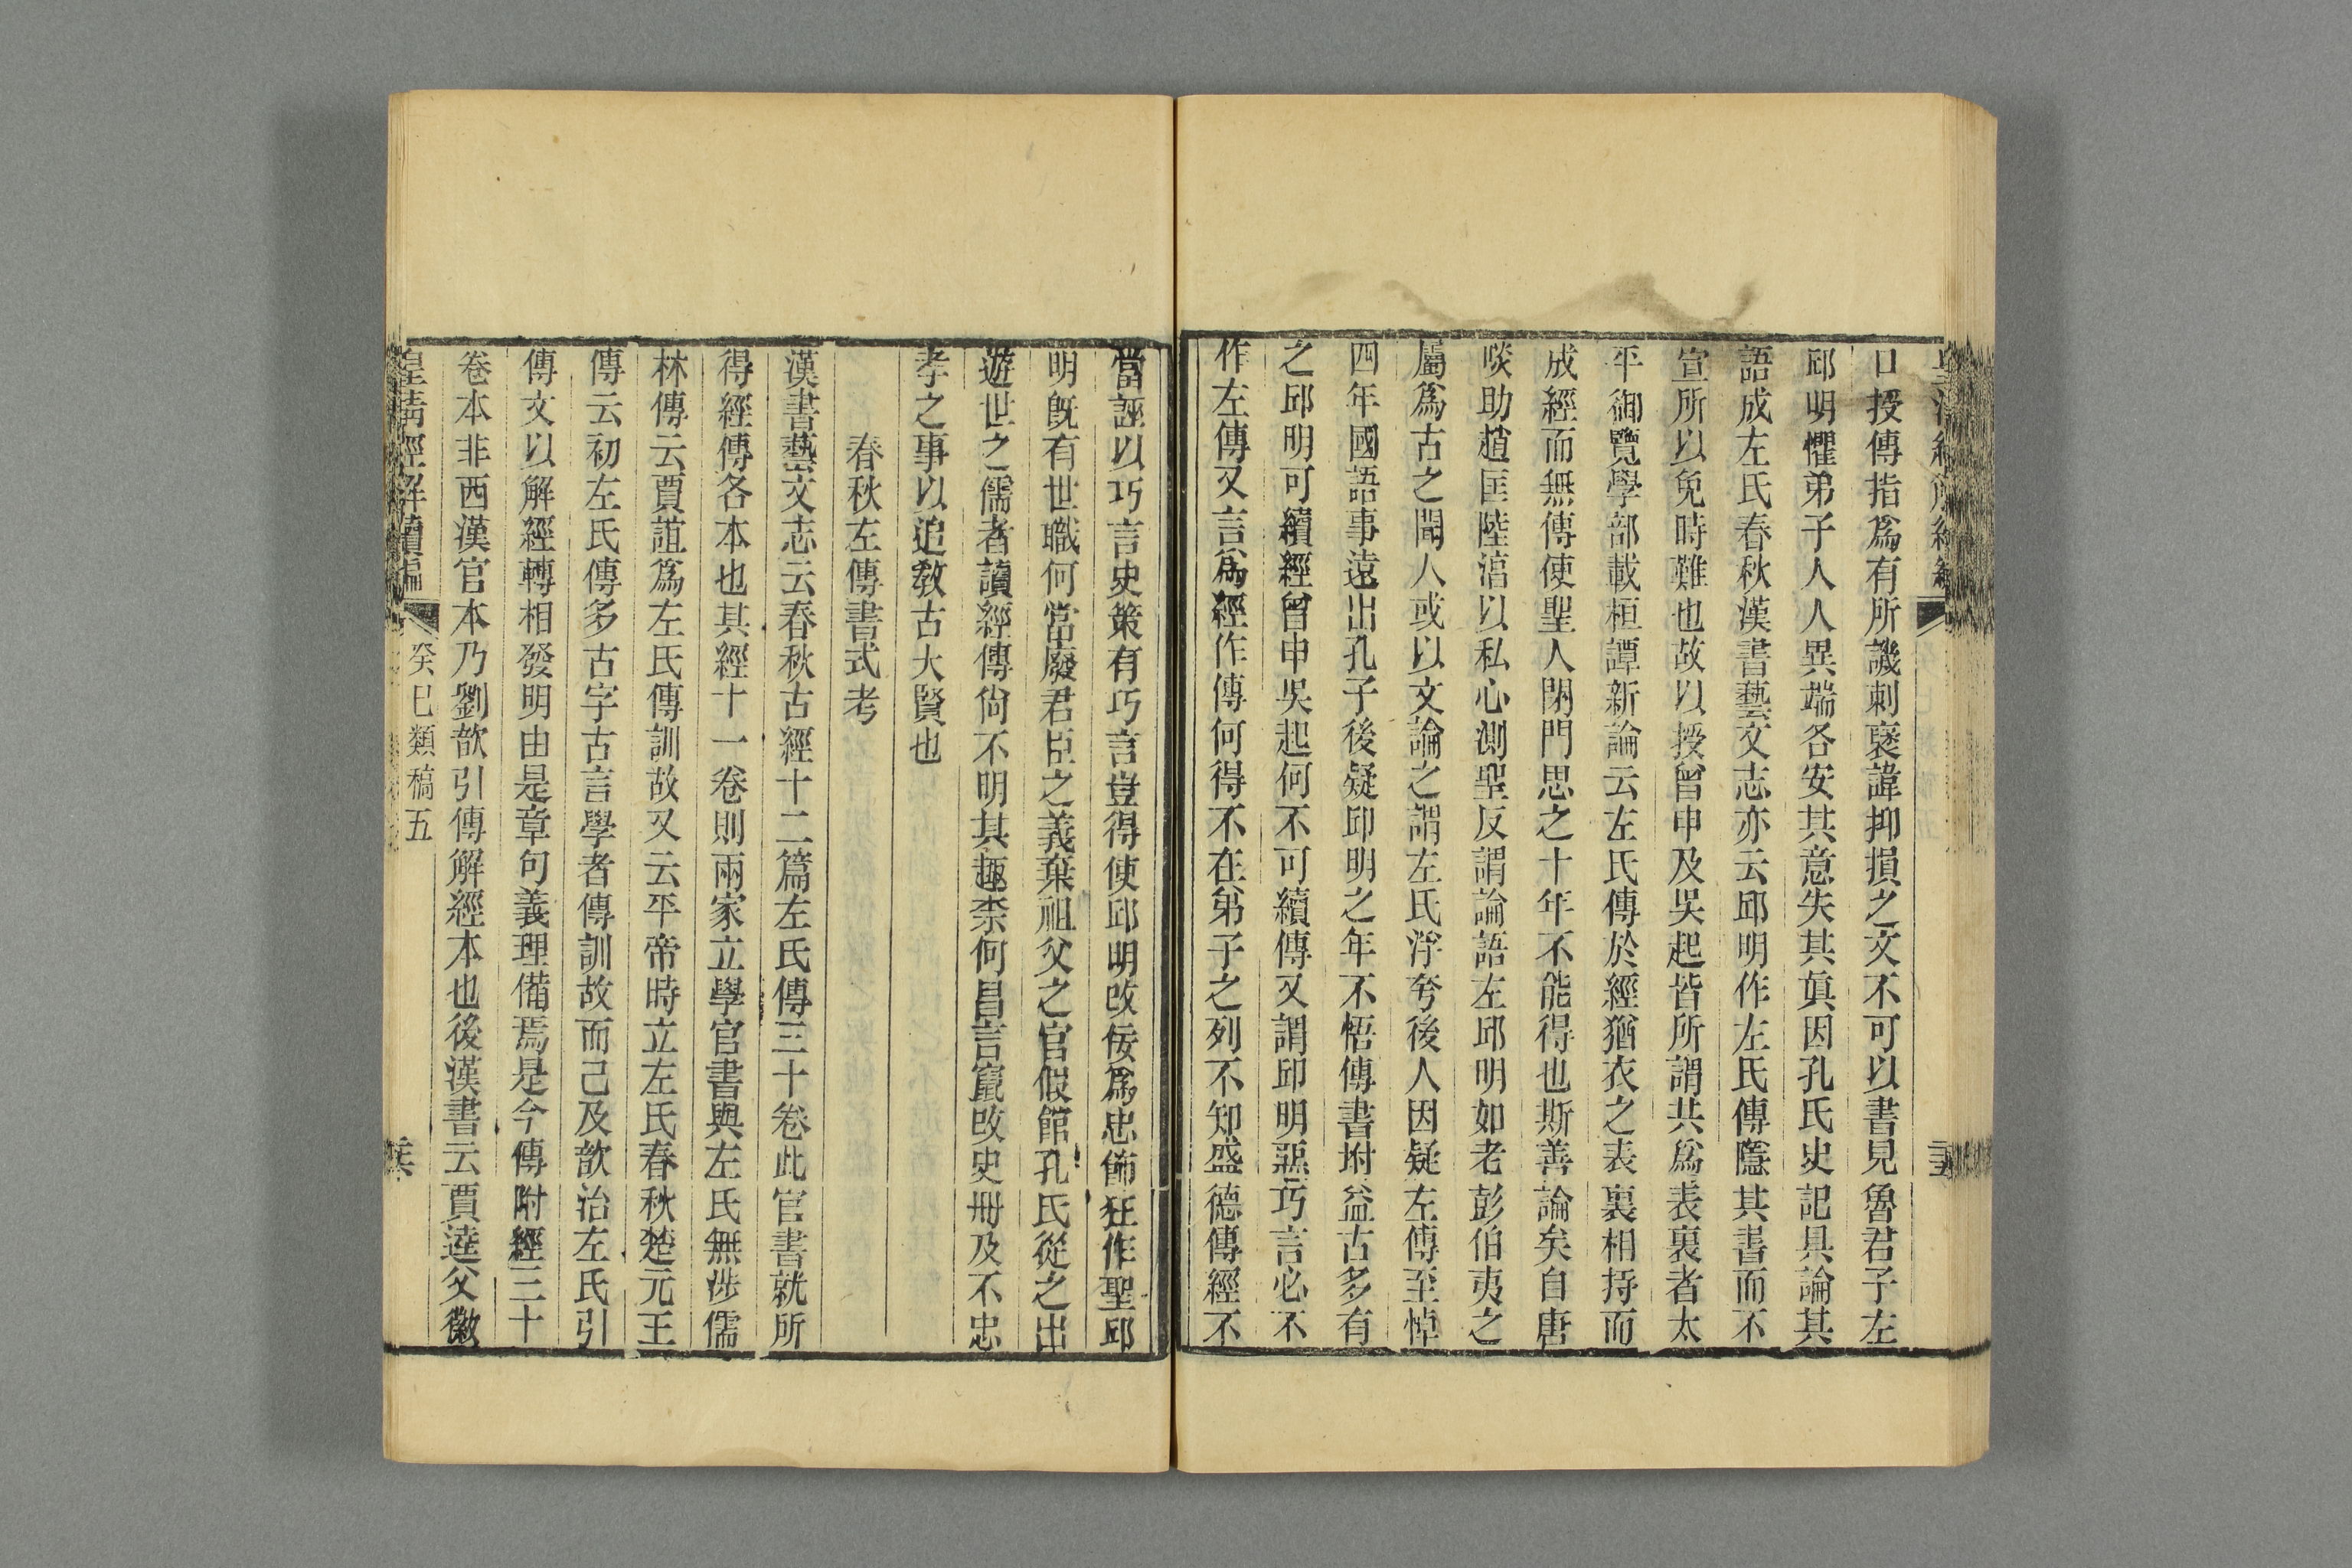 口授傳指爲有所譏刺襃諱抑損之文不可以書見魯君子左
邱明懼弟子人人異端各安其意失其眞因孔氏史記具論其
語成左氏春秋漢書藝文志亦云邱明作左氏傳隱其書而不
宣所以免時難也故以授曾申及吳起皆所謂共爲表裏者太
平御覽學部載桓譚新論云左氏傳於經猶衣之表裏相持而
成經而無傳使聖人閉門思之十年不能得也斯善論矣自唐
啖助趙匡陸淳以私心測聖反謂論語左邱明如老彭伯夷之
屬爲古之聞人或以文論之謂左氏浮夸後人因疑左傳至悼
四年國語事遠出孔子後疑邱明之年不悟傳書坿益古多有
之邱明可續經曾申吳起何不可續傳又謂邱明惡巧言必不
作左傳又言爲經作傳何得不在弟子之列不知盛德傳經不
當誣以巧言史策有巧言豈得使邱明改佞爲忠飾狂作聖邱
明旣有世職何當廢君臣之義棄祖父之官假館孔氏從之出
遊世之儒者讀經傳尙不明其趣柰何昌言竄改史冊及不忠
孝之事以追敎古大賢也
春秋左傳書式考
漢書藝文志云春秋古經十二篇左氏傳三十卷此官書就所
得經傳各本也其經十一卷則兩家立學官書與左氏無涉儒
林傳云賈誼爲左氏傳訓故又云平帝時立左氏春秋楚元王
傳云初左氏傳多古字古言學者傳訓故而已及歆治左氏引
傳文以解經轉相發明由是章句義理備焉是今傳附經三十
卷本非西漢官本乃劉歆引傳解經本也後漢書云賈逵父徽
皇淸經解續編 癸巳類稿五